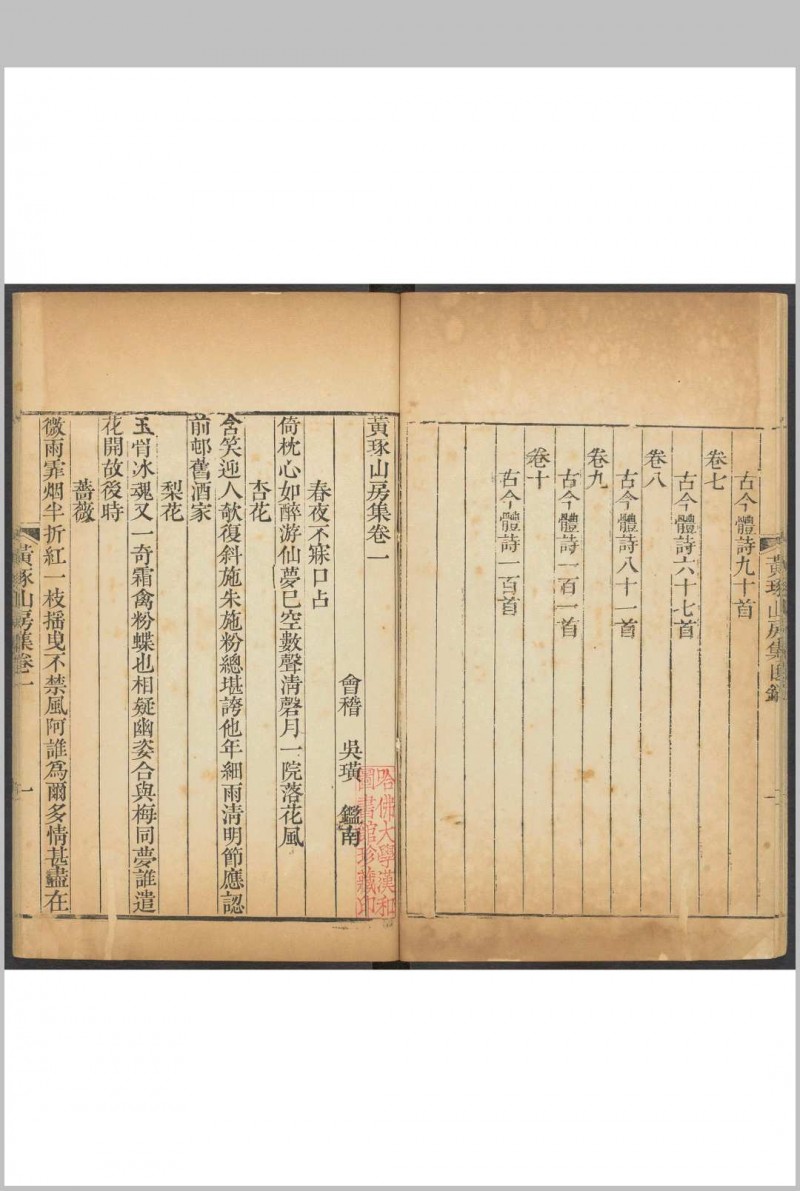 古今體詩九十首
卷七
古今體詩六十七首
卷八
古今體詩八十一首
卷九
古今體詩一百一首
卷十
古今體詩一百首
黃琢山房集卷一
會稽 吳璜 鑑南
春夜不寐口占
倚枕心如醉游仙夢巳空數聲淸磬月一院落花風
杏花
含笑迎人欹復斜施朱施粉總堪誇他年細雨淸明節應認
前邨舊酒家
梨花
玉骨冰魂又一奇霜禽粉蝶也相疑幽姿合與梅同夢誰遣
花開故後時
薔薇
微雨霏烟半折紅一枝揺曵不禁風阿誰爲爾多情甚盡在
黃琢山房集卷一
一
哈佛大學漢和
圖書館珍藏印